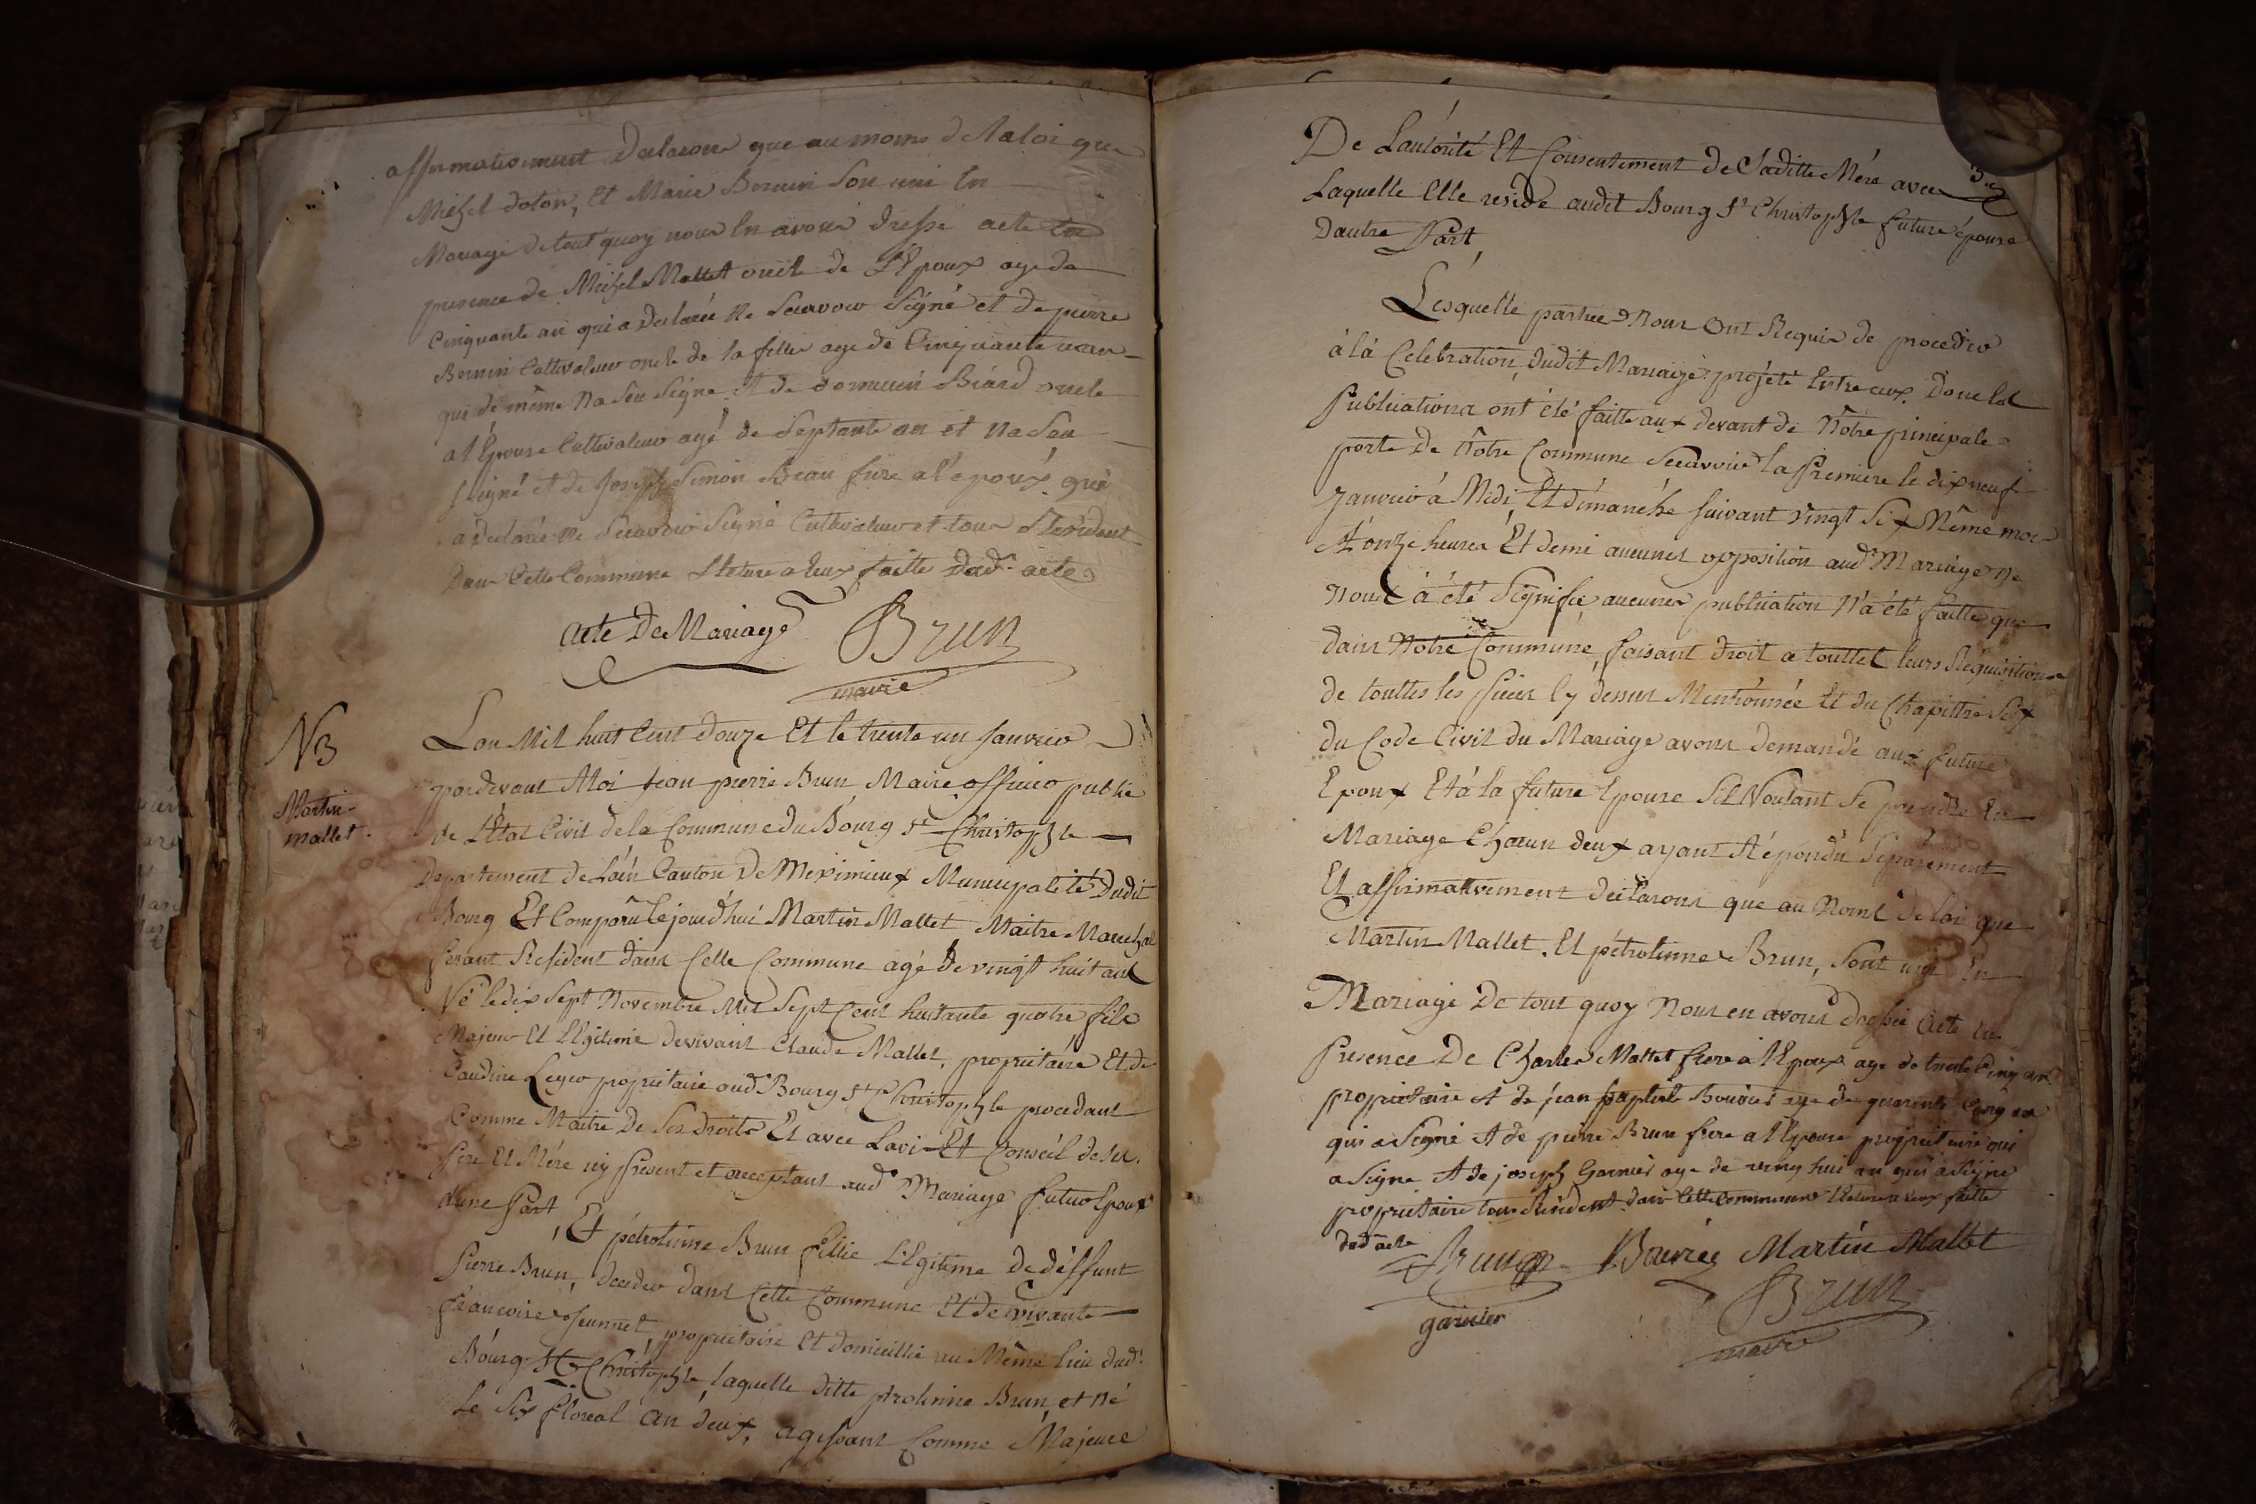 affirmativement declarons que au moins de la loi que
Michel doton, Et Marie Bernin Son uni En
Mariage de tout quoy nous en avons dressé acte En
presence de Michel Mallet oncle de L'Epoux age de
Cinquante an qui a declarée ne Scavoir Signé et de pierre
Bernin Cultivateur oncle de la fille age de Cinquante
qui de même Na Seu Signe et de Biard oncle
a l'Epouse Cultivateur agé de Septante an et Na Seu
Signé et de Joseph Simon Beau frere a l'epoux qui
a declarée ne Scavoir Signé Cultivateur et tous Residant
Dans Cette Commune Lecture a Eux faitte Dud. acte
Acte De Mariage Brun
maire
N3
Martin
mallet.
Lan Mil huit Cent douze Et le trente un Janvier
pardevant Moi Jean pierre Brun Maire officier public
de L'Etat Civil de la Commune du Bourg St Christophle
Departement de L'ain Canton De Meximieux Municipalité Dudit
Bourg Et Comparu Cejourd'hui Martin Mallet Maitre Marechal
ferant Resident dans Cette Commune agé de vingt huit ans
Né le dix Sept Novembre Mil Sept Cent huitante quatre fils
Majeur Et Légitime de vivant Claude Mallet, proprietaire Et de
Claudine proprietaire aud. Bourg St Christophle procedant
Comme Maitre De Ses droits Et avec Lavi Et Conseil de Ses
Père Et Mére icy présent et acceptant aud. Mariage futur Epoux
d'une Part,
Et pétrolinne Brun fillie Légitime De déffunt
Pierre Brun, décéder dans Cette Commune Et de vivante
francoise Jeunnet, proprietaire Et domicillié au Même lieu dud.
Bourg St Christophle, laquelle ditte pétrolinne Brun, et né
Le Six floreal an deux, agissant Comme Majeure
3.e
De L'autorité Et Consentement de Saditte Mére avec
Laquelle Elle reside audit Bourg St Christophle future épouse
Dautre Part,
Lesquelle parties Nous Ont Requis de proceder
à la Celebration dudit Mariage projeté Entre eux. Dont les
Publications ont été faitte aux devant de Nôtre principale
porte De Nôtre Commune Scavoir la Premiere le dix neuf
Janvier à Midi, Et Dimanche suivant vingt Six Même mois
à onze heures Et demi aucunes opposition aud. Mariage Ne
Nous à été Signifié aucunes publication N'a été faitte que
dans Nôtre Commune, faisant droit a touttes leurs Requisitions
de touttes les Pieces Cy dessus Mentionnée Et du Chapittre Six
du Code Civil du Mariage avons demandé aux future
Epoux Et à la future Epouse Sil Voulant Se prendre En
Mariage Chacun deux ayant Répondu Séparément
Et affirmativement déclarons que au Noms de loi que
Martin Mallet. Et pétrolinne Brun, Sont uni En
Mariage De tout quoy Nous en avons dressé Acte en
Presence De Charles Mallet frere a l'Epoux age de trente Cinq an
proprietaire Et de jean baptiste Bouvier age de quarente Cinq an
qui a Signé Et de pierre Brun frere a l'Epouse proprietaire qui
a Signe Et de joseph Garnier age de ving huit an qui a Signe
proprietaire tous Résident dans Cette Commune Lecture a eux faitte
dud. acte
Brun Martin Mallet
garnier Brun
maire